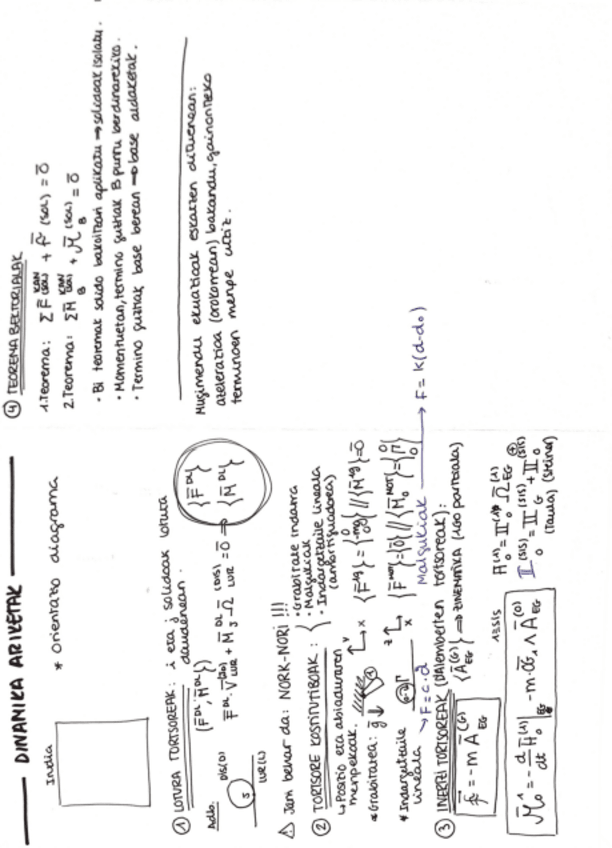 DINAMIKA ARIKETAK
Irudia
* Orientazio diagrama
① LOTURA TORTSOREAK: i eta j solidoak lotuta
daudenean.
{F̄ᴰᴸ; M̄ᴰᴸ}
Adb.
DIS(D)
S
LUR(L)
F̄ᴰᴸ · V̄ + M̄ᴰᴸ · Ω̄ = 0 ⇒ {F̄ᴰᴸ} {M̄ᴰᴸ}
⚠ Jarri behar da: NORK-NORI !!!
② TORTSORE KOSTITUTIBOAK:
· Grabitate indarra
· Malgukiak
· Indargetzaile lineala
(amortiguadorea)
↳ Posizio eta abiaduraren
menpekoak.
* Grabitatea: ḡ
* Indargetzaile
lineala
→ F=c·ḋ
Malgukiak → F= K(d-d₀)
③ INERTZI TORTSOREAK (D'Alemberten tortsoreak):
{Ā(G) EG} ⇒ ZINEMATIKA (1GO partziala)
(Taula) (Steiner)
④ TEOREMA BEKTORIALAK
1. Teorema: Σ F̄ KAN (SOL) + (SOL) = 0̄
2. Teorema: Σ M̄ KAN (SOL) B + (SOL) B = 0̄
· Bi teoremak solido bakoitzari aplikatu → solidoak isolatu.
· Momentuetan, termino guztiak B puntu berdinarekiko.
· Termino guztiak base berean → base aldaketak.
Mugimendu ekuazioak eskatzen dituenean:
azelerazioa (orokorrean) bakandu, gainontzeko
terminoen menpe utziz.